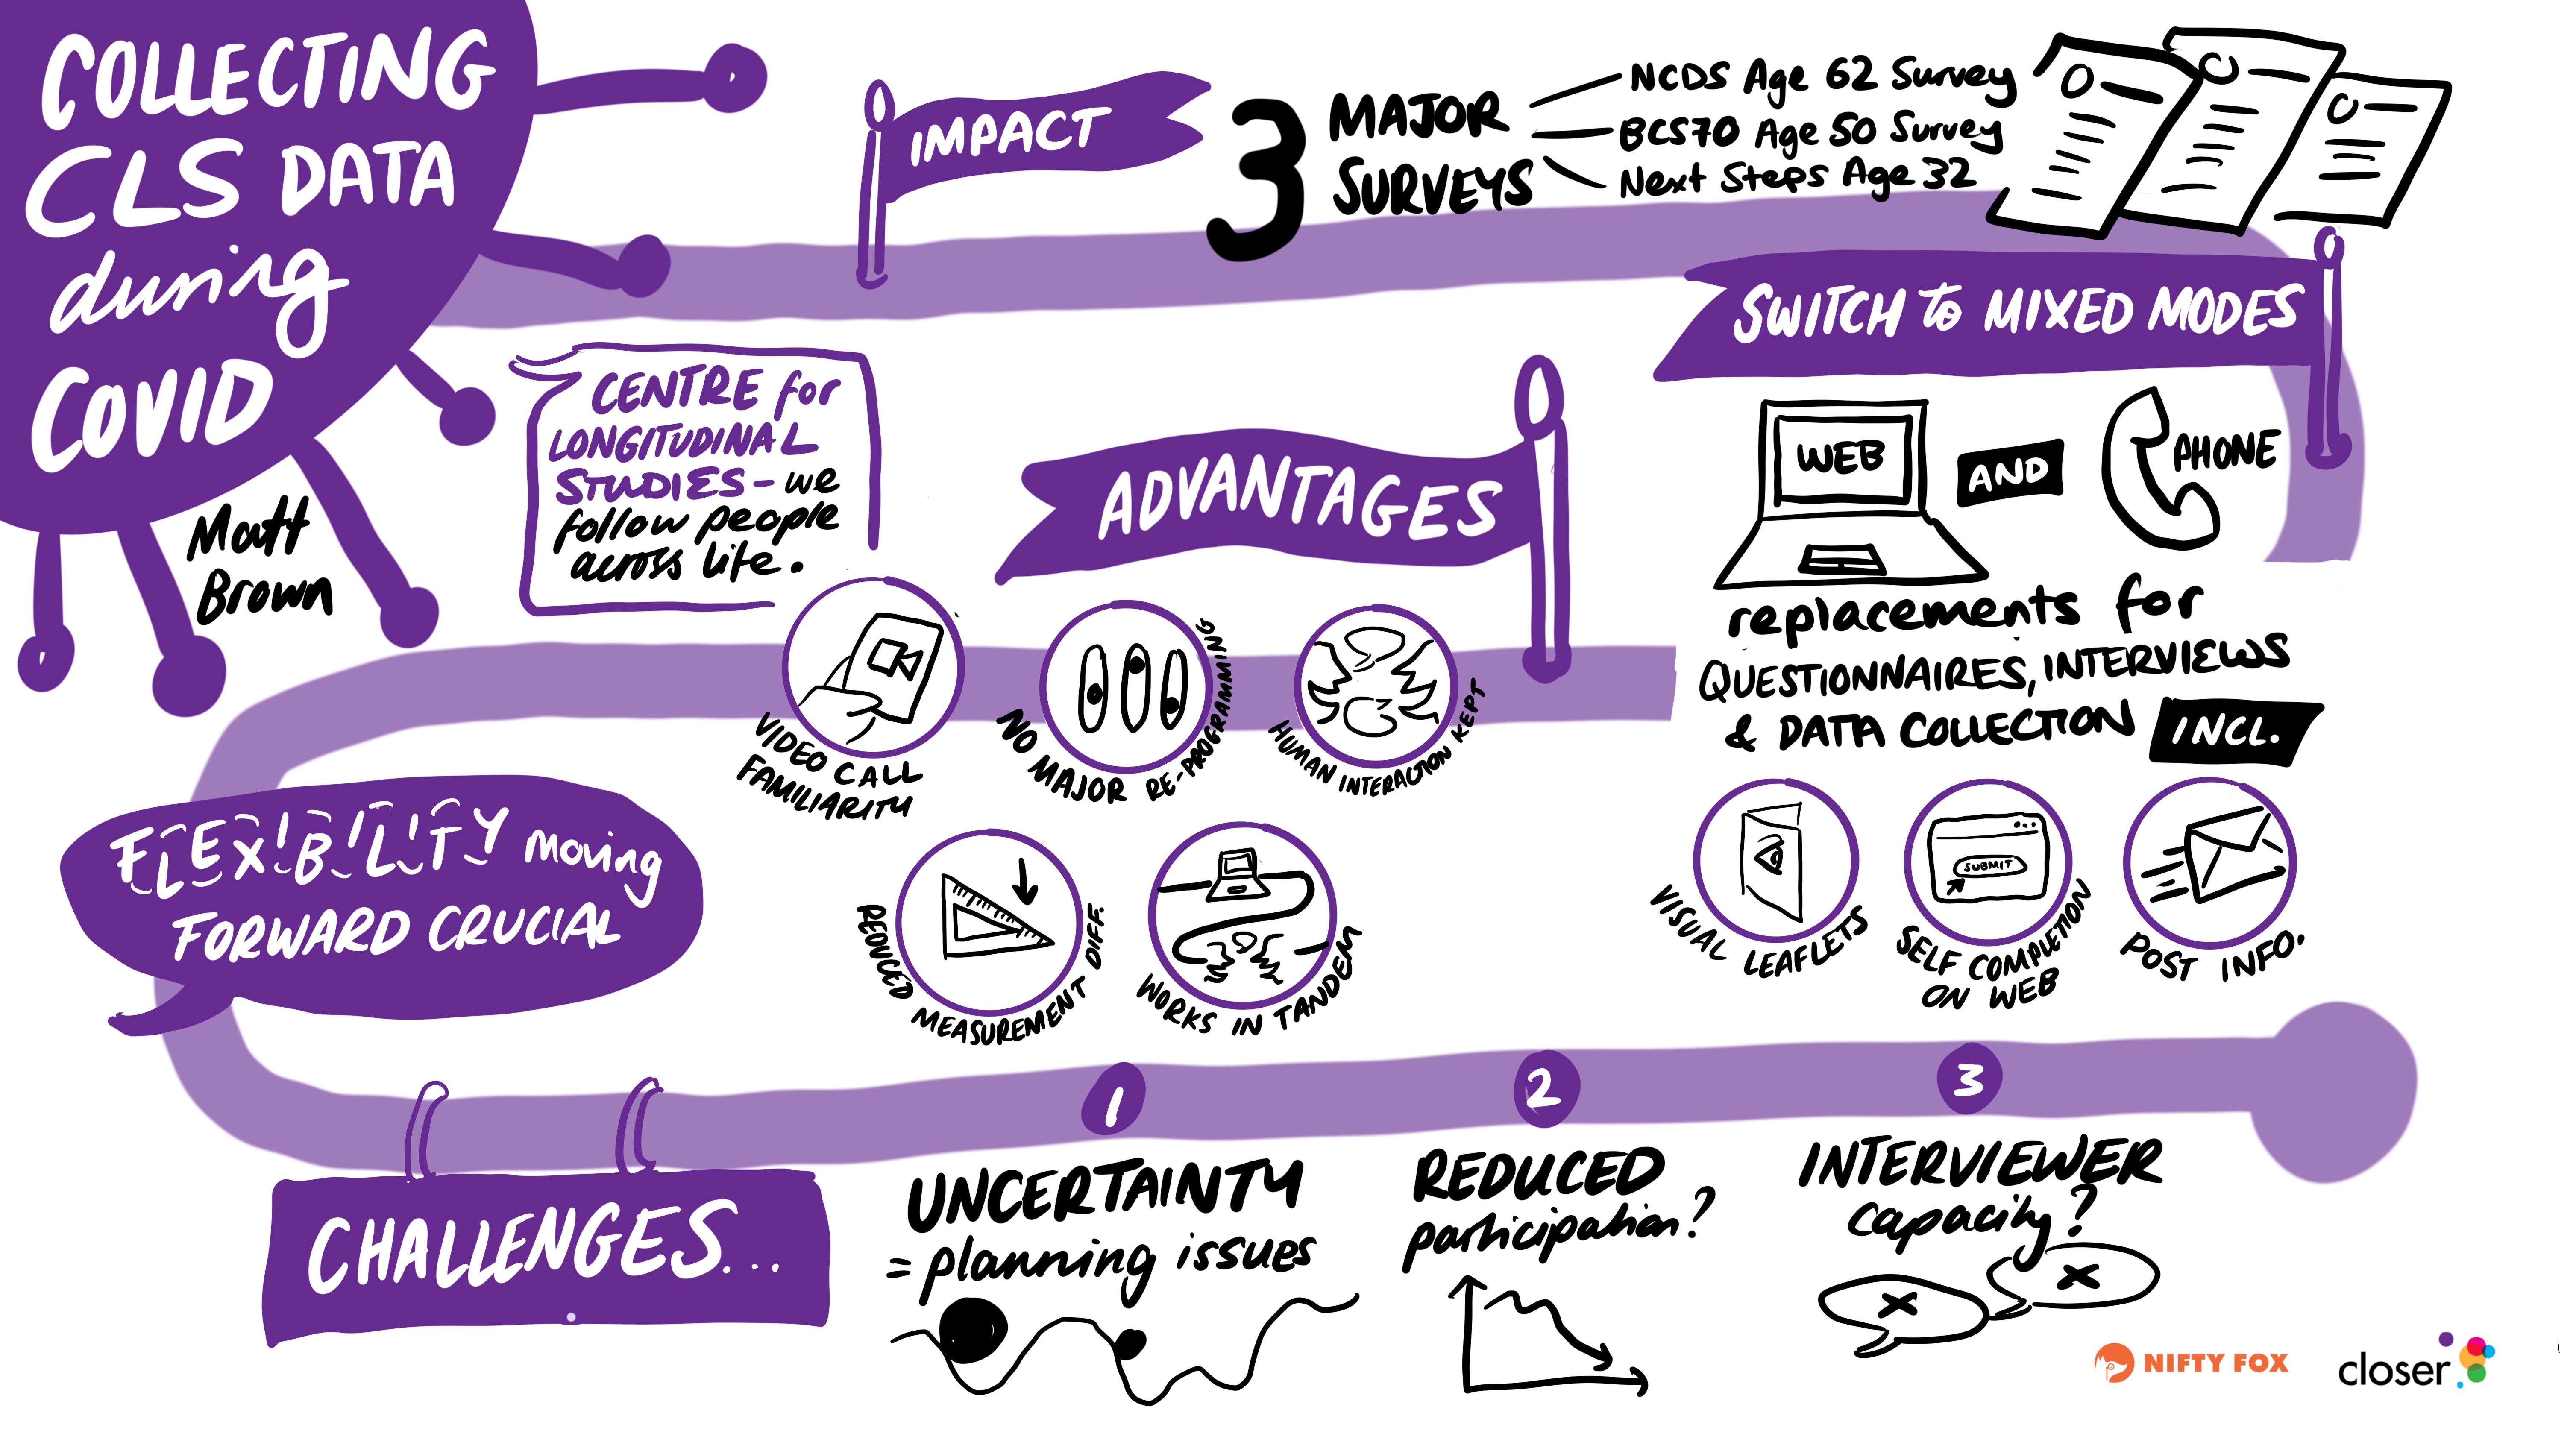 COLLECTING
CLS DATA
during
COVID
Matt
Brown
IMPACT
3
MAJOR
SURVEYS
NCDS Age 62 Survey
BCS70 Age 50 Survey
Next Steps Age 32
CENTRE for
LONGITUDINAL
STUDIES - we
follow people
across life.
SWITCH to MIXED MODES
WEB
AND
PHONE
replacements for
QUESTIONNAIRES, INTERVIEWS
& DATA COLLECTION
INCL.
VISUAL LEAFLETS
SUBMIT
SELF COMPLETION
ON WEB
POST INFO.
ADVANTAGES
VIDEO CALL
FAMILIARITY
NO MAJOR RE-PROGRAMMING
HUMAN INTERACTION KEPT
REDUCED MEASUREMENT DIFF.
WORKS IN TANDEM
FLEXIBILITY moving
FORWARD CRUCIAL
CHALLENGES...
1
UNCERTAINTY
= planning issues
2
REDUCED
participation?
3
INTERVIEWER
capacity?
NIFTY FOX
closer